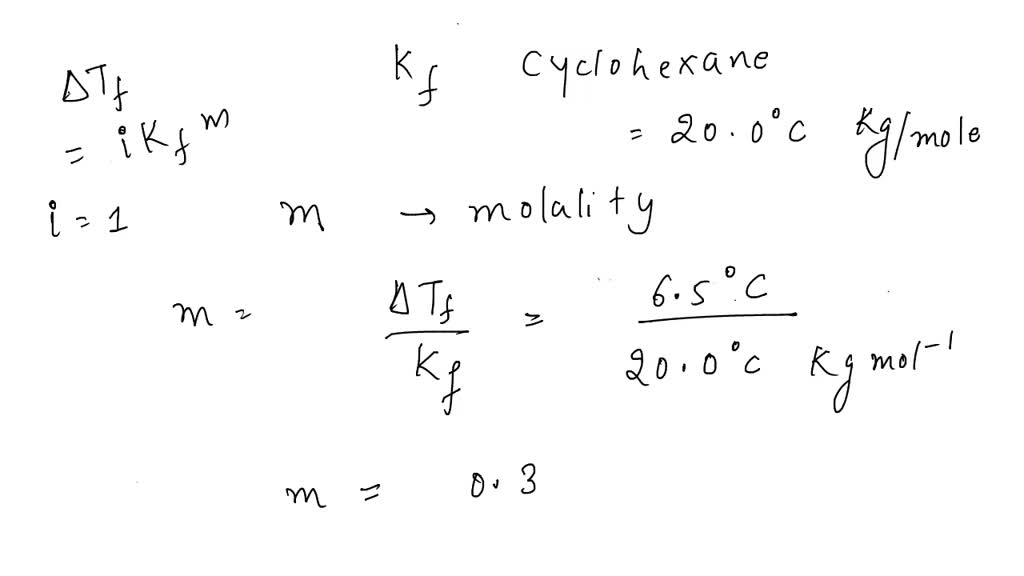 ΔTf Kf Cyclohexane
= i Kf m = 20.0°C Kg/mole
i = 1 m → molality
m = ΔTf / Kf = 6.5°C / 20.0°C Kg mol⁻¹
m = 0.3